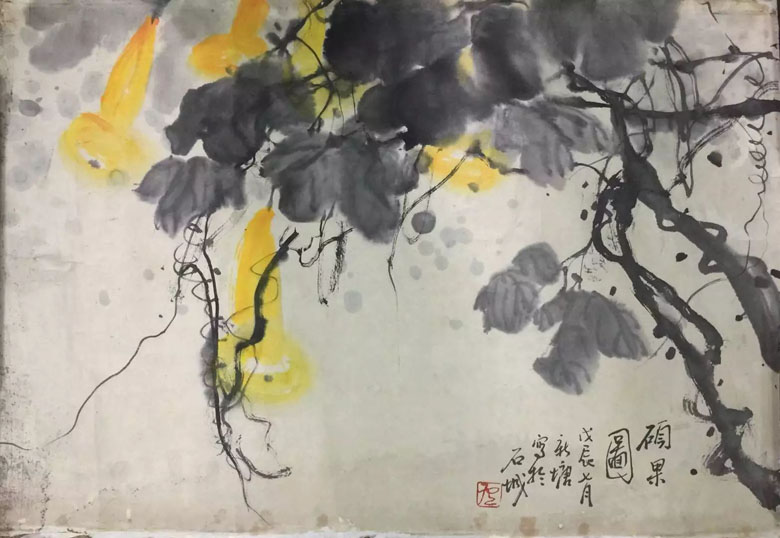 碩果
圖
戊辰七月
新塘
寫於
石城